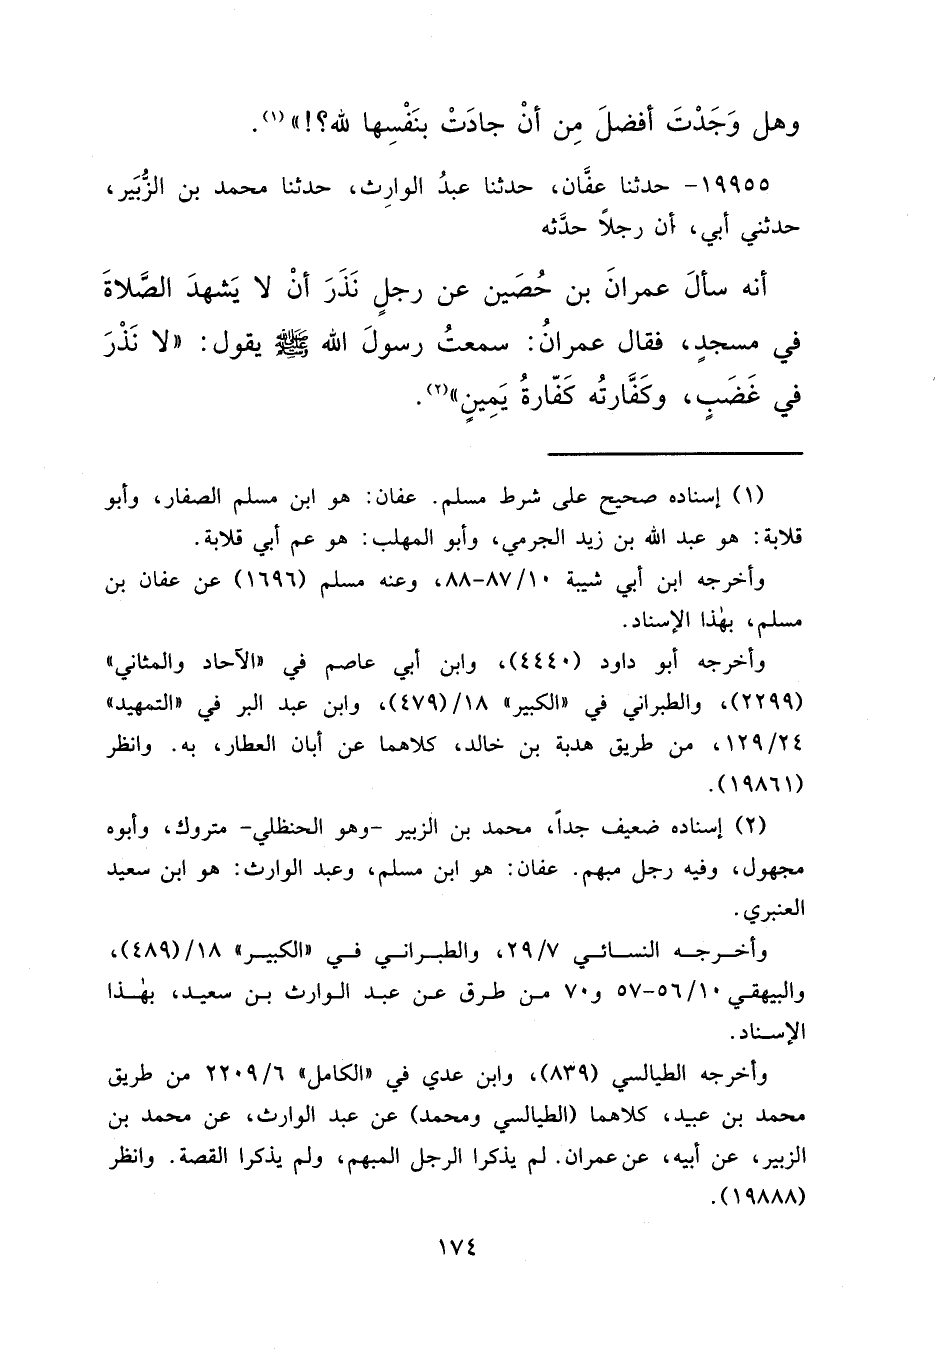 وهل وَجَدْتَ أفضلَ مِن أنْ جادَتْ بنَفْسِها لله؟!»(١).
١٩٩٥٥- حدثنا عفَّان، حدثنا عبدُ الوارِث، حدثنا محمد بن الزُّبَير،
حدثني أبي، أن رجلاً حدَّثه
أنه سألَ عمرانَ بن حُصَين عن رجلٍ نَذَرَ أنْ لا يَشهدَ الصَّلاةَ
في مسجدٍ، فقال عمرانُ: سمعتُ رسولَ الله ﷺ يقول: «لا نَذْرَ
في غَضَبٍ، وكَفَّارتُه كَفّارةُ يَمِينٍ»(٢).
(١) إسناده صحيح على شرط مسلم. عفان: هو ابن مسلم الصفار، وأبو
قلابة: هو عبد الله بن زيد الجرمي، وأبو المهلب: هو عم أبي قلابة.
وأخرجه ابن أبي شيبة ١٠/ ٨٧-٨٨، وعنه مسلم (١٦٩٦) عن عفان بن
مسلم، بهٰذا الإسناد.
وأخرجه أبو داود (٤٤٤٠)، وابن أبي عاصم في «الآحاد والمثاني»
(٢٢٩٩)، والطبراني في «الكبير» ١٨/(٤٧٩)، وابن عبد البر في «التمهيد»
٢٤/ ١٢٩، من طريق هدبة بن خالد، كلاهما عن أبان العطار، به. وانظر
(١٩٨٦١).
(٢) إسناده ضعيف جداً، محمد بن الزبير -وهو الحنظلي- متروك، وأبوه
مجهول، وفيه رجل مبهم. عفان: هو ابن مسلم، وعبد الوارث: هو ابن سعيد
العنبري.
وأخرجه النسائي ٧/ ٢٩، والطبراني في «الكبير» ١٨/(٤٨٩)،
والبيهقي ١٠/ ٥٦-٥٧ و٧٠ من طرق عن عبد الوارث بن سعيد، بهٰذا
الإسناد.
وأخرجه الطيالسي (٨٣٩)، وابن عدي في «الكامل» ٦/ ٢٢٠٩ من طريق
محمد بن عبيد، كلاهما (الطيالسي ومحمد) عن عبد الوارث، عن محمد بن
الزبير، عن أبيه، عن عمران. لم يذكرا الرجل المبهم، ولم يذكرا القصة. وانظر
(١٩٨٨٨).
١٧٤